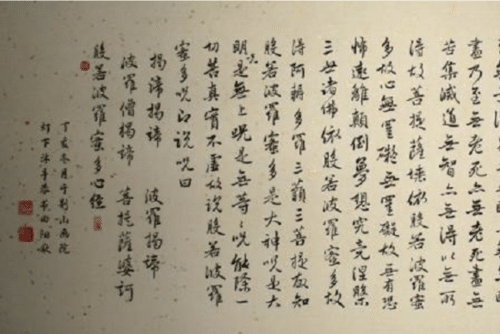 盡乃至無老死亦無老死盡無
苦集滅道無智亦無得以無所
得故菩提薩埵依般若波羅蜜
多故心無罣礙無罣礙故無有恐
怖遠離顛倒夢想究竟涅槃
三世諸佛依般若波羅蜜多故
得阿耨多羅三藐三菩提故知
般若波羅蜜多是大神呪是大
明是無上呪是無等〻呪能除一
切苦真實不虛故說般若波羅
蜜多呪即說呪曰
揭諦揭諦 波羅揭諦
波羅僧揭諦 菩提薩婆訶
般若波羅蜜多心經
丁亥冬月于荆山画院
灯下沐手恭